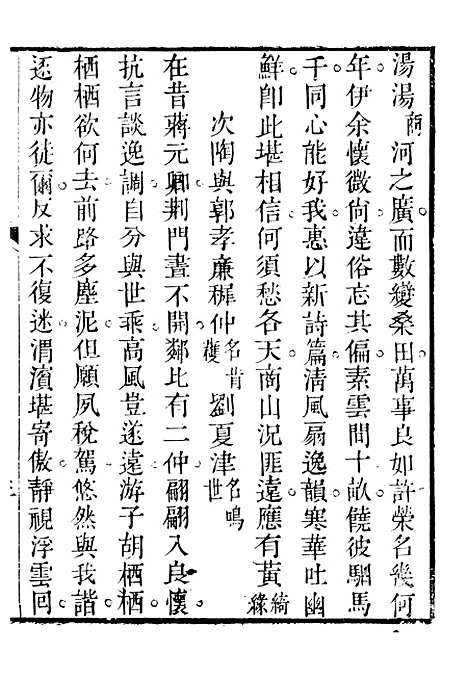 湯湯商河之廣而數變桑田萬事良如許榮名幾何
年伊余懷微尙違俗忘其偏素雲間十畝饒彼駟馬
千同心能好我惠以新詩篇淸風扇逸韻寒華吐幽
鮮卽此堪相信何須愁各天商山況匪遠應有黃綺綠
次陶與郭孝廉穉仲名肯穫劉夏津名鳴世
在昔蔣元卿荆門晝不開鄰比有二仲翩翩入良懷
抗言談逸調自分與世乖高風豈遂遠游子胡栖栖
栖栖欲何去前路多塵泥但願夙稅駕悠然與我諧
逐物亦徒爾反求不復迷渭濱堪寄傲靜視浮雲回